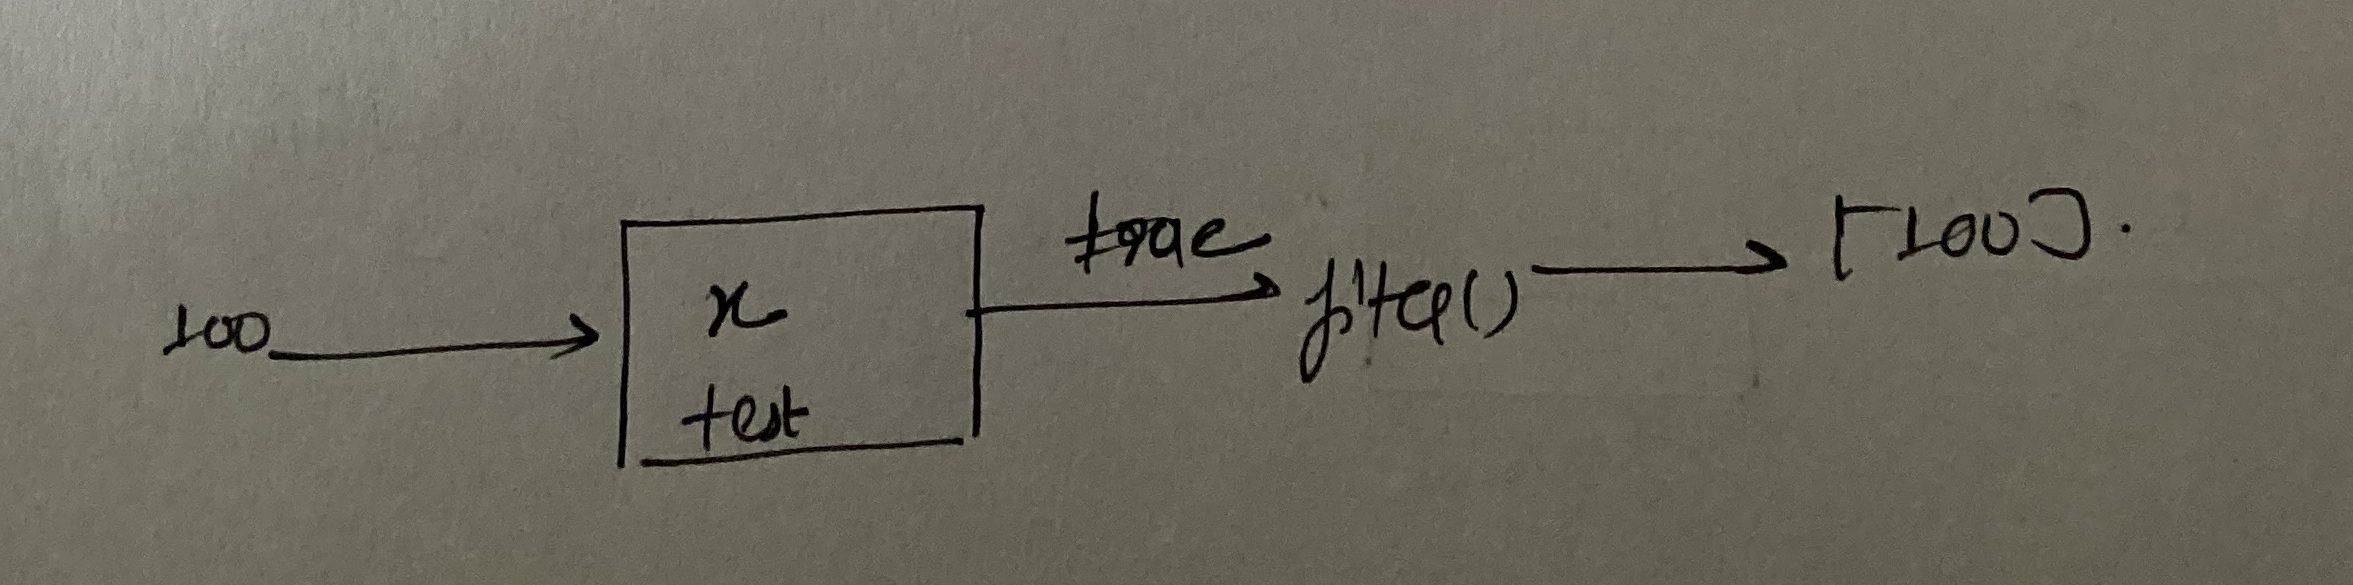 100
x
test
true
filter()
[100].